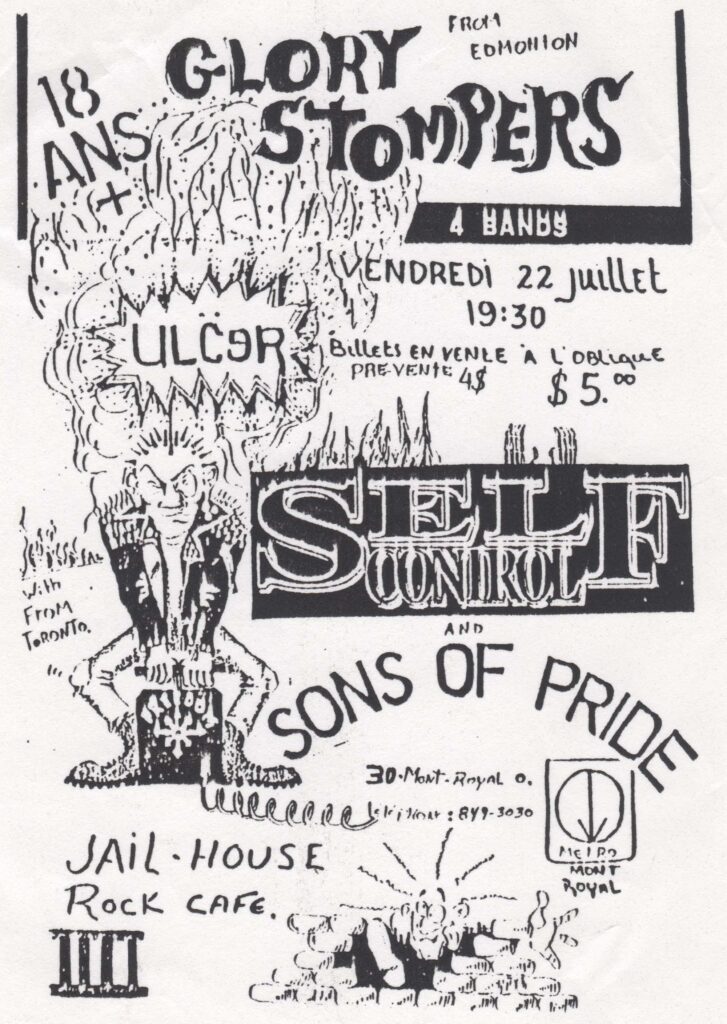 18
ANS
+
GLORY
STOMPERS
FROM
EDMONTON
4 BANDS
VENDREDI 22 juillet
19:30
Billets EN VENTE À L'OBLIQUE
PRE-VENTE 4$ $5.00
ULC̈ER
SELF
CONTROL
With
FROM
TORONTO.
AND
SONS OF PRIDE
30·MONT-ROYAL O.
téléphone : 849-3030
METRO
MONT
ROYAL
JAIL·HOUSE
ROCK CAFE.